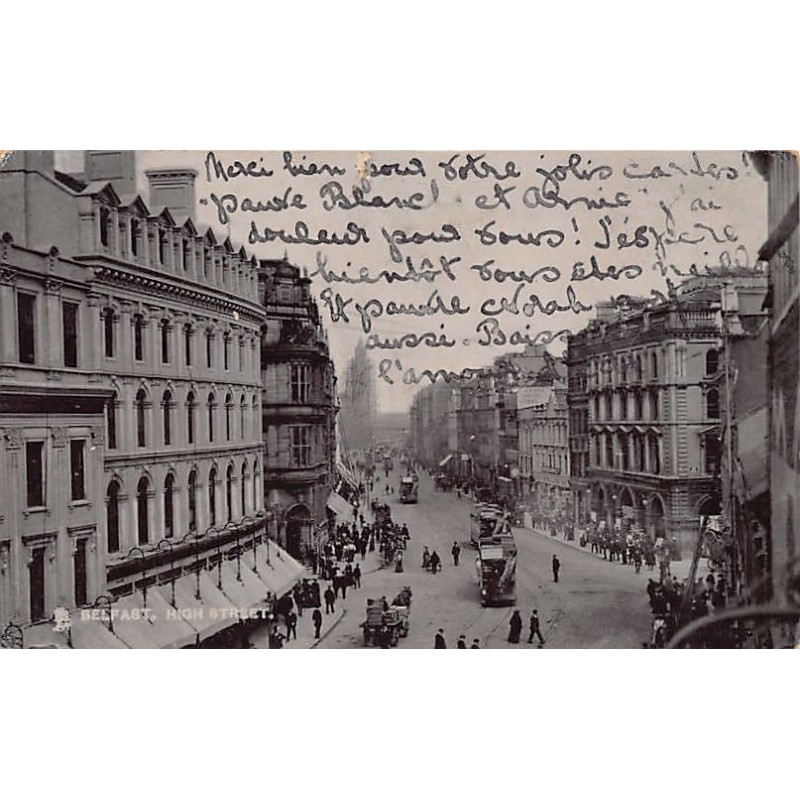 Merci bien pour votre jolis cartes!
"pauvre Blanc" et Annie" j'ai
douleur pour vous! J'éspère
bientôt vous êtes
Et pauvre
aussi. Baiss
l'amour
BELFAST. HIGH STREET.